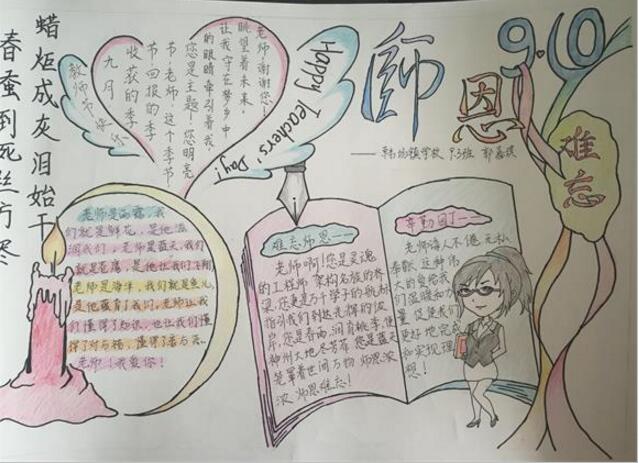 春蚕到死丝方尽
蜡炬成灰泪始干
老师,谢谢您!
眺望着未来,
让我守在梦乡中
的眼睛牵引着我,
您是主题!您明亮
节,老师,这个季节
节回报的季
收获的季
九月
教师节快乐
Happy Teachers' Day!
師恩
9.10
难忘
老师是雨露,我
们就是鲜花,是他滋
润我们,老师是蓝天,我们
就是苍鹰,是他让我们飞翔
老师是海洋,我们就是鱼儿,
是他蕴育了我们,老师让我
们懂得了知识,也让我们懂
得了对与错,懂得了善与恶。
老师!我爱你!
难忘师恩——
老师啊!您是灵魂
的工程师,架构名族的桥
梁,您更是万千学子的航标
指引我们到达光辉的彼
岸,您是春雨,润育桃李,使
神州大地尽芳菲 您是蓝天
笼罩着世间万物 师恩浓
浓 师恩难忘!
辛勤园丁——
老师诲人不倦 无私
奉献 这种伟
大的 给我
们温暖和力
量 促使我们
更好地完成
和实现理
想!